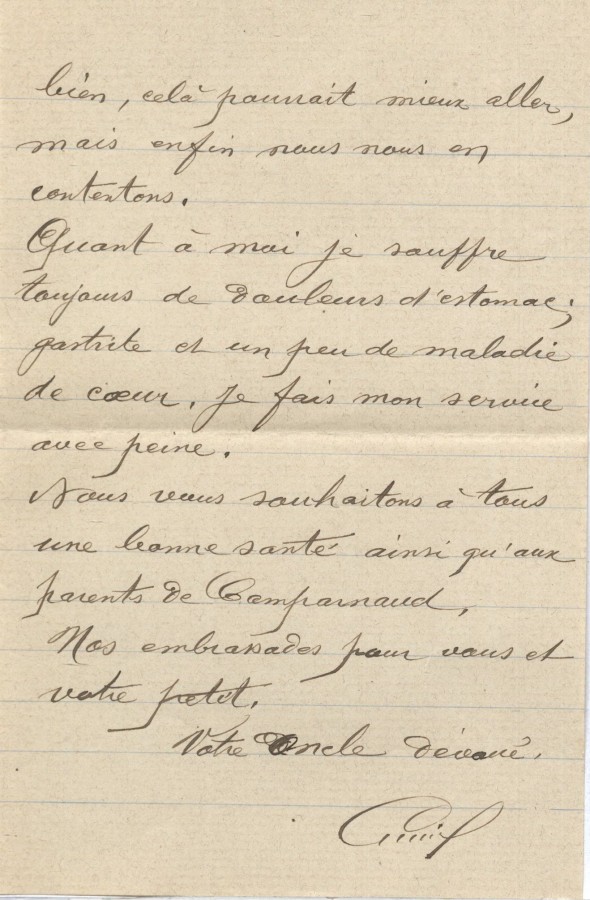 bien, celà pourrait mieux aller,
mais enfin nous nous en
contentons.
Quant à moi je souffre
toujours de douleurs d'estomac;
gastrite et un peu de maladie
de cœur. Je fais mon service
avec peine.
Nous vous souhaitons à tous
une bonne santé ainsi qu'aux
parents de Camparnaud,
Nos embrassades pour vous et
votre petit.
Votre Oncle dévoué.